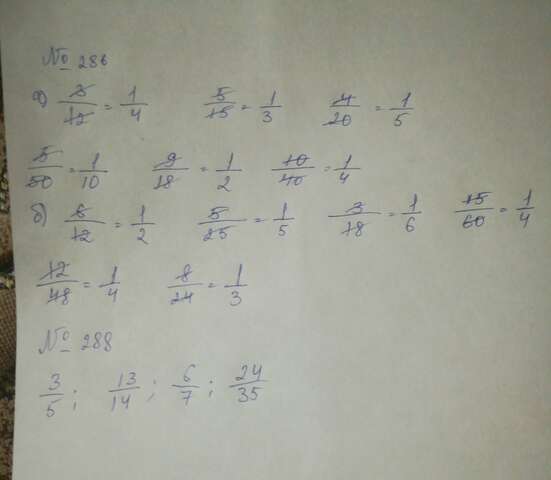 № 286
а) 3/12 = 1/4 5/15 = 1/3 4/20 = 1/5
5/50 = 1/10 9/18 = 1/2 10/40 = 1/4
б) 6/12 = 1/2 5/25 = 1/5 3/18 = 1/6 15/60 = 1/4
12/48 = 1/4 8/24 = 1/3
№ 288
3/5; 13/14; 6/7; 24/35